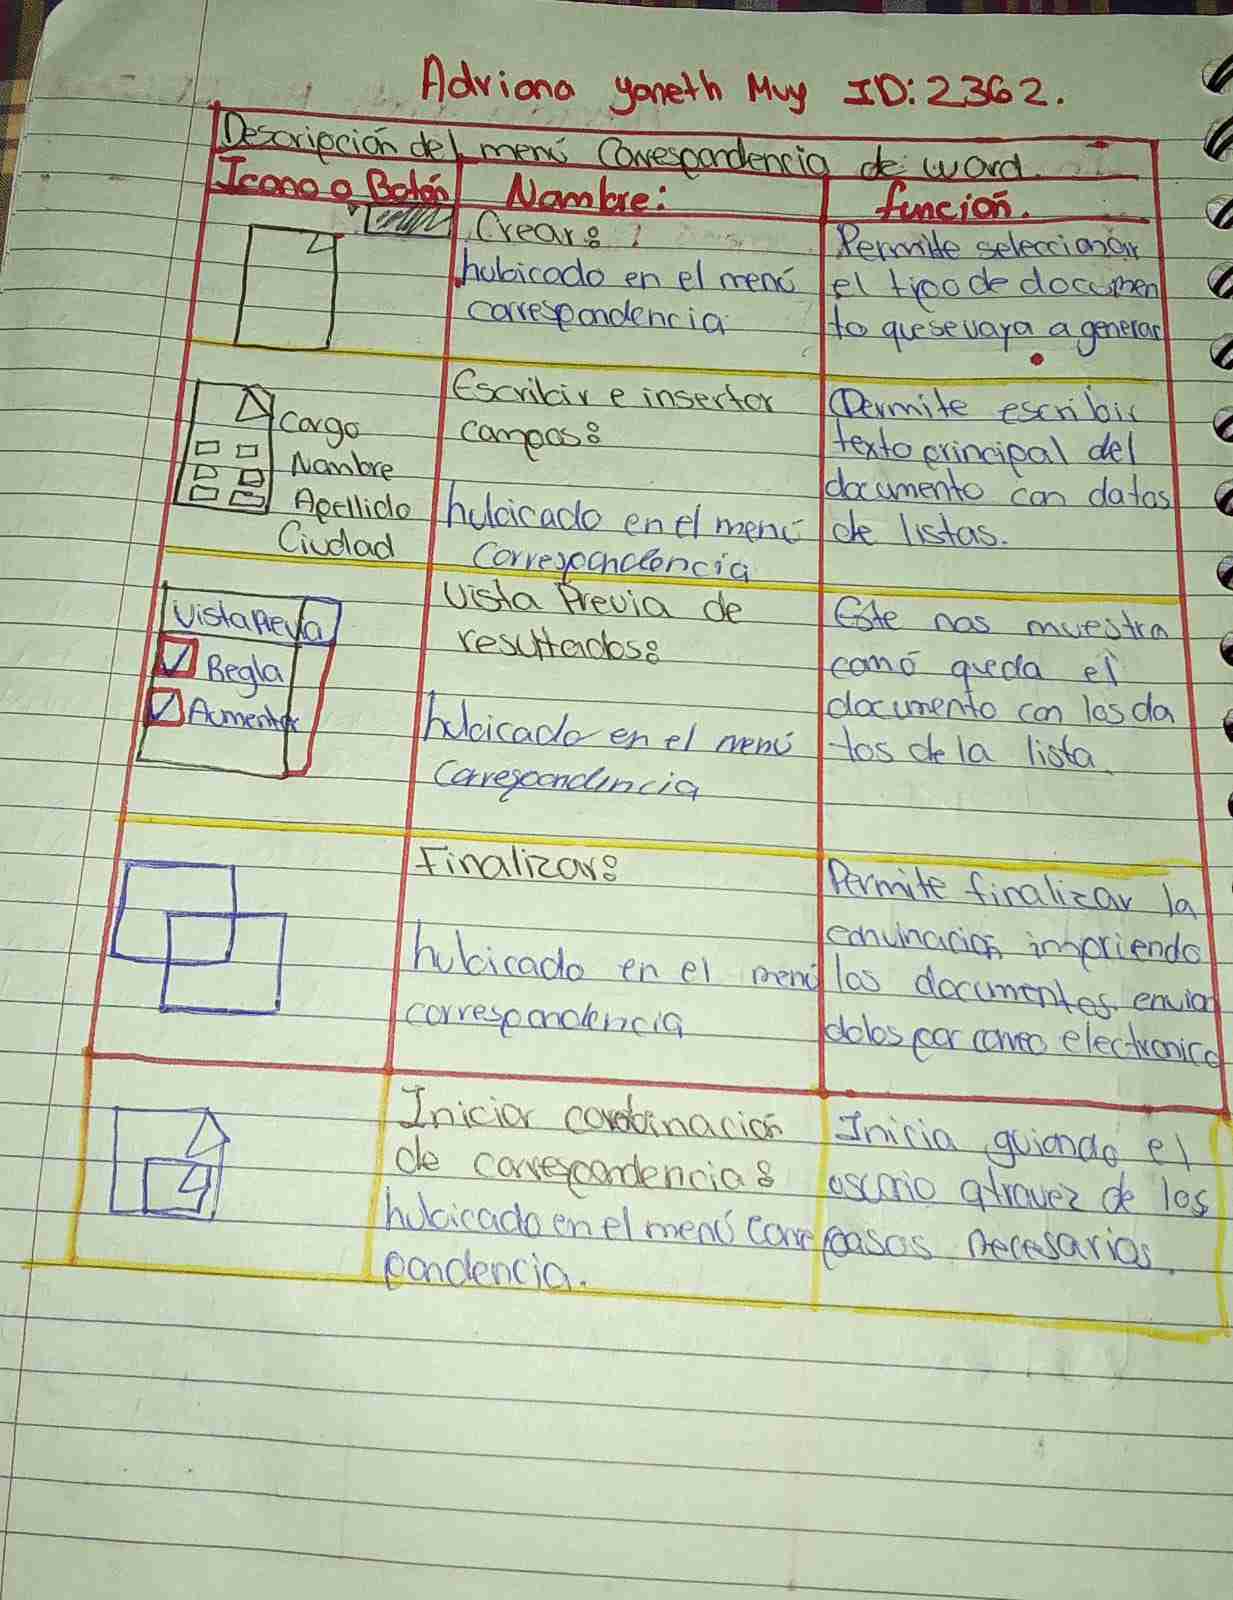 Adriana yaneth Muy ID: 2362.
Descripción del menú Correspondencia de word.
Icono o Botón
Nombre:
función.
Crear:
hubicado en el menú
correspondencia
Permite seleccionar
el tipo de documen
to que se vaya a generar
Cargo
Nombre
Apellido
Ciudad
Escribir e insertar
campos:
hubicado en el menú
correspondencia
Permite escribir
texto principal del
documento con datos
de listas.
Vista Previa
Regla
Aumentar
Vista Previa de
resultados:
hubicado en el menú
Correspondencia
Este nos muestra
comó queda el
documento con los da
tos de la lista.
Finalizar:
hubicado en el menú
correspondencia
Permite finalizar la
impriendo
los documentos envian
dolos por correo electronico
Iniciar combinación
de correspondencia:
hubicado en el menú corre
pondencia.
Inicia guiando el
usuario atravez de los
pasos necesarios.